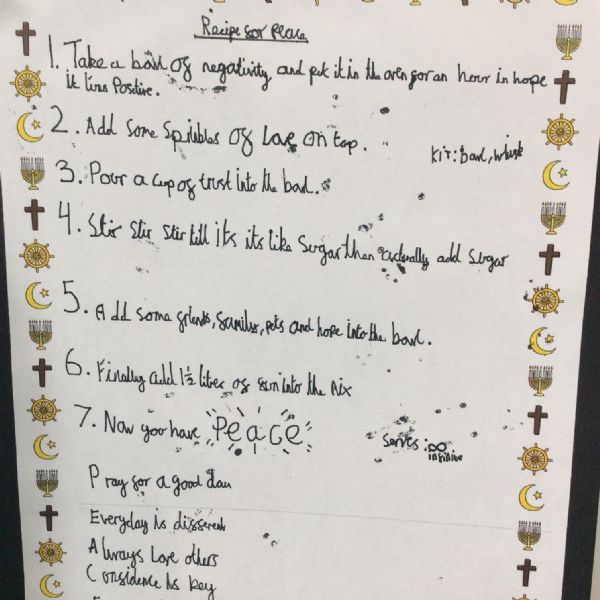 Recipe for Peace
1. Take a bowl of negativity and put it in the oven for an hour in hope
it turns Positive.
2. Add some Sprinkles of Love on top.
Kit: Bowl, whisk
3. Pour a cup of trust into the bowl.
4. Stir Stir Stir till its its like Sugar then actually add sugar
5. Add some friends, families, pets and hope into the bowl.
6. Finally add 1½ litres of fun into the mix
7. Now you have Peace
Serves: ∞
infinitive
Pray for a good day
Everyday is different
Always Love others
Confidence is key